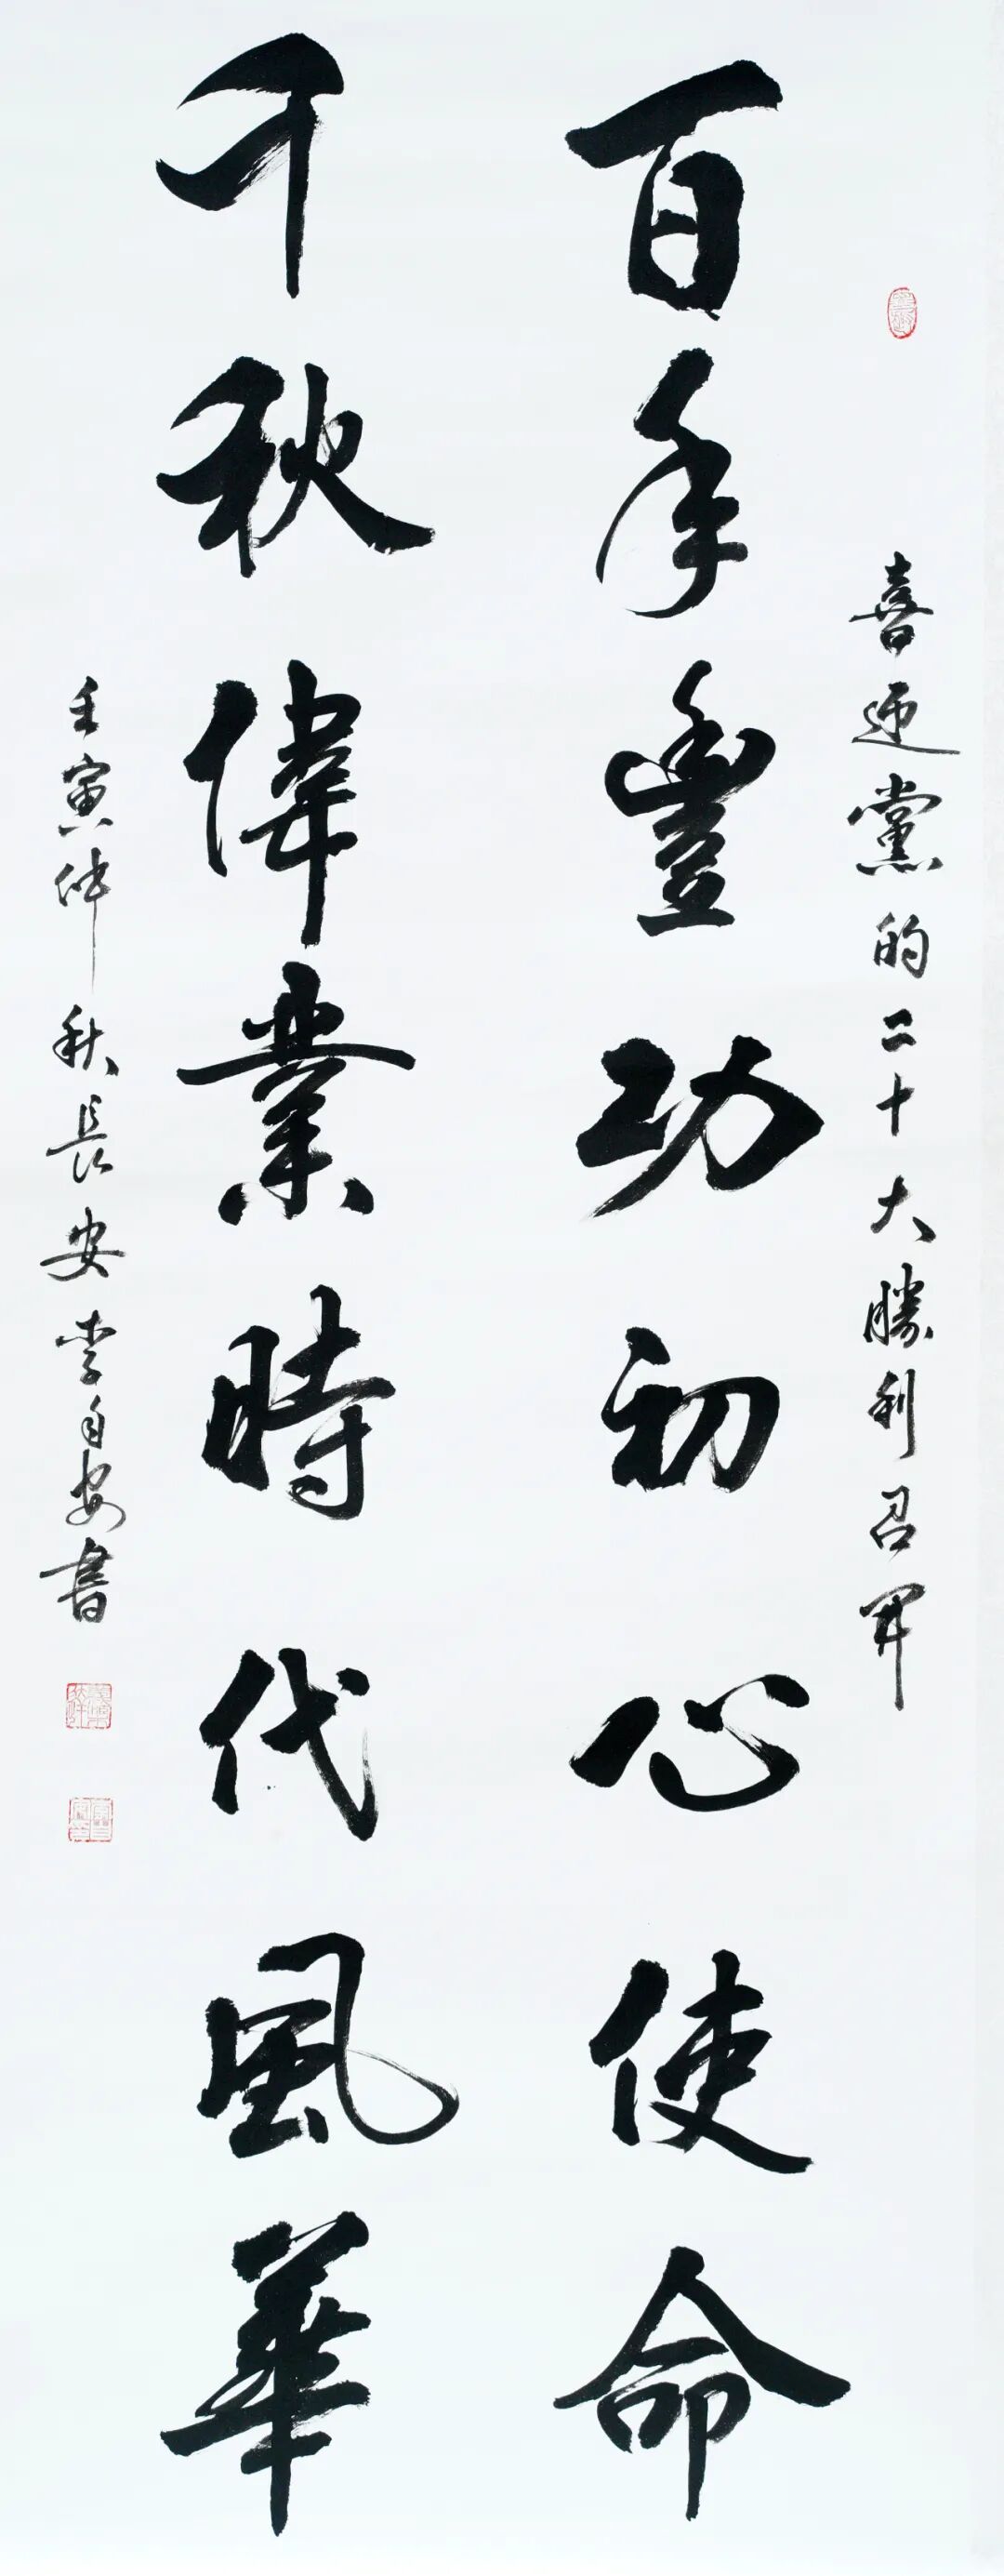 喜迎黨的二十大勝利召開
百年豐功初心使命
千秋偉業時代風華
壬寅仲秋長安李自安書